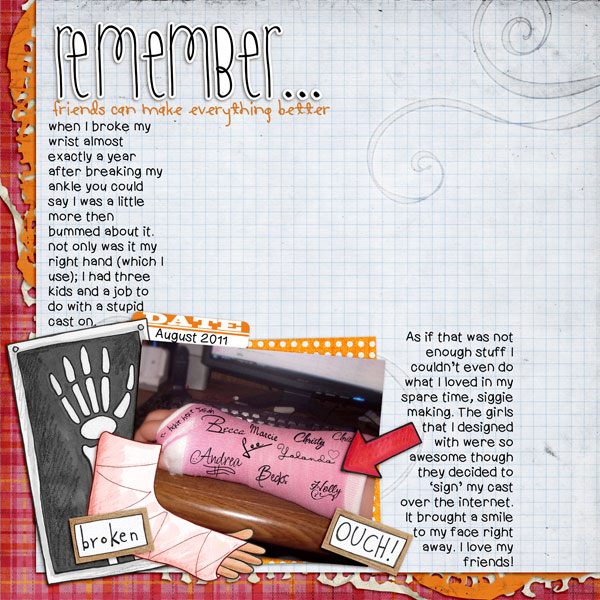 remember...
friends can make everything better
when I broke my
wrist almost
exactly a year
after breaking my
ankle you could
say I was a little
more then
bummed about it.
not only was it my
right hand (which I
use); I had three
kids and a job to
do with a stupid
cast on.
DATE
August 2011
As if that was not
enough stuff I
couldn't even do
what I loved in my
spare time, siggie
making. The girls
that I designed
with were so
awesome though
they decided to
'sign' my cast
over the internet.
It brought a smile
to my face right
away. I love my
friends!
Becca Marcie Christy
Yolanda
Andrea Becks Holly
broken
OUCH!